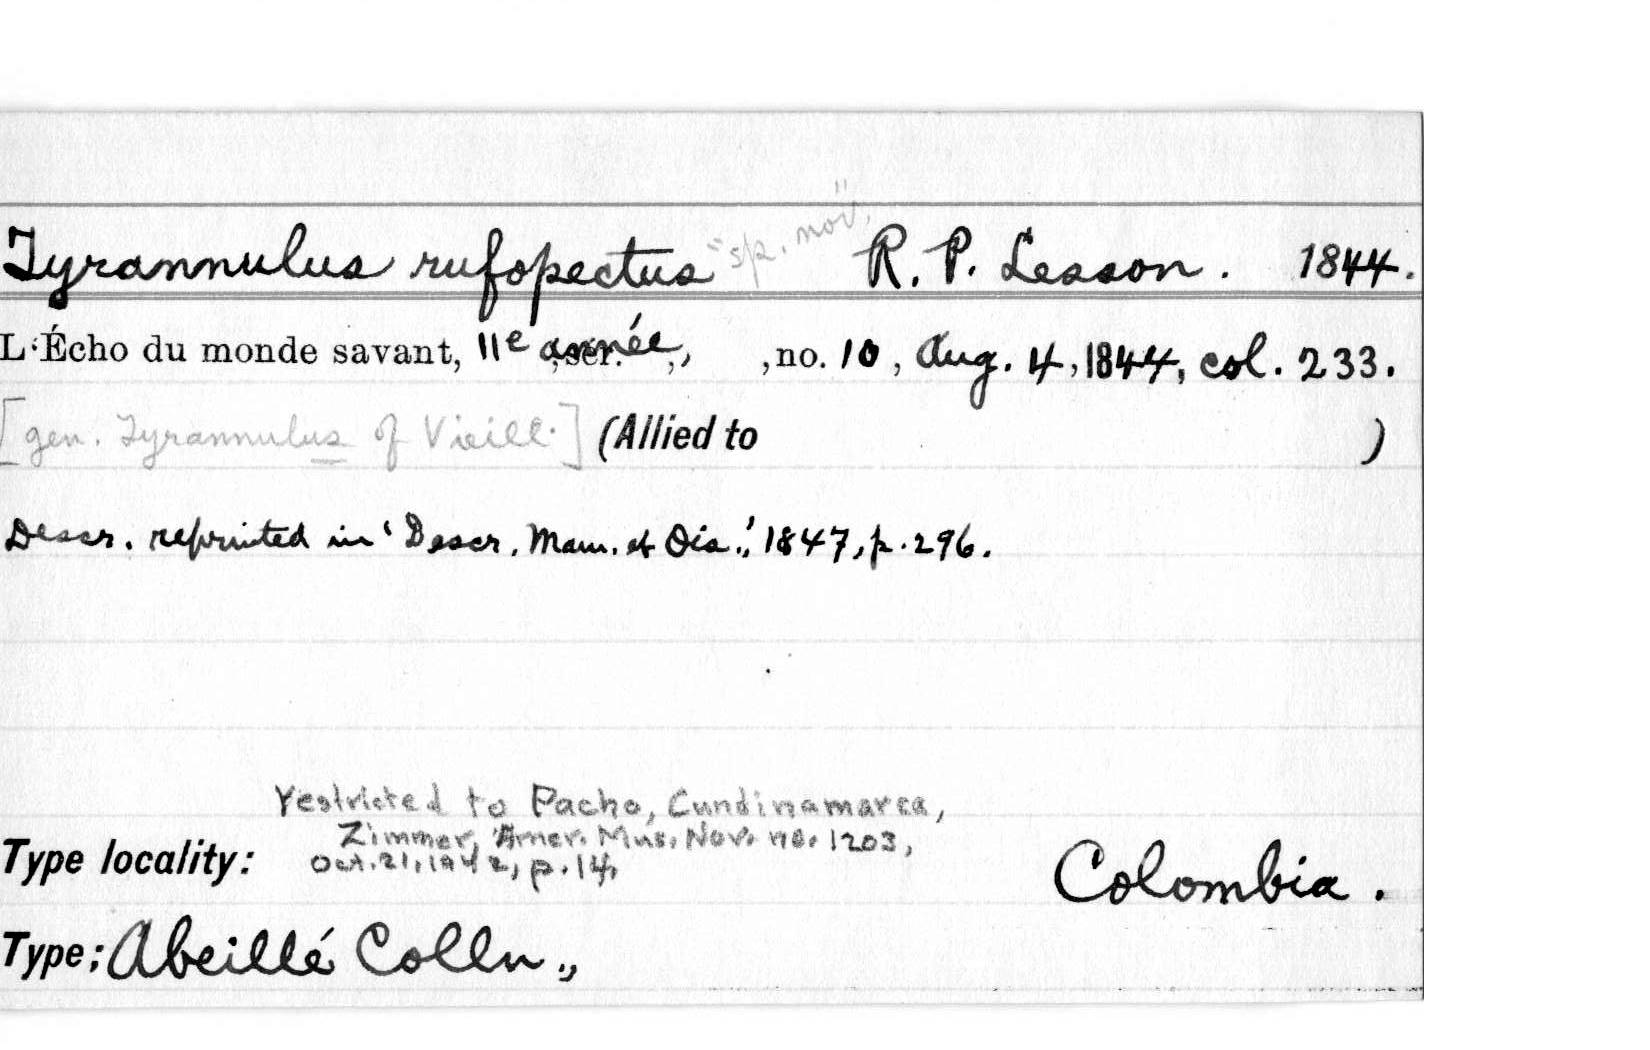 Tyrannulus rufopectus "sp. nov". R. P. Lesson. 1844.
L'Écho du monde savant, 11e année, ser. , , no. 10, Aug. 4, 1844, col. 233.
[gen. Tyrannulus of Vieill.] (Allied to )
Descr. reprinted in 'Descr. Mam. et Ois.,' 1847, p. 296.
restricted to Pacho, Cundinamarca,
Zimmer, Amer. Mus. Nov. no. 1203,
Oct. 21, 1942, p. 14,
Type locality: Colombia.
Type: Abeillé Colln.,